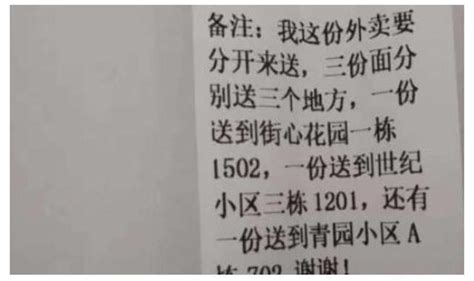 备注：我这份外卖要
分开来送，三份面分
别送三个地方，一份
送到街心花园一栋
1502，一份送到世纪
小区三栋1201，还有
一份送到青园小区A
栋702 谢谢！